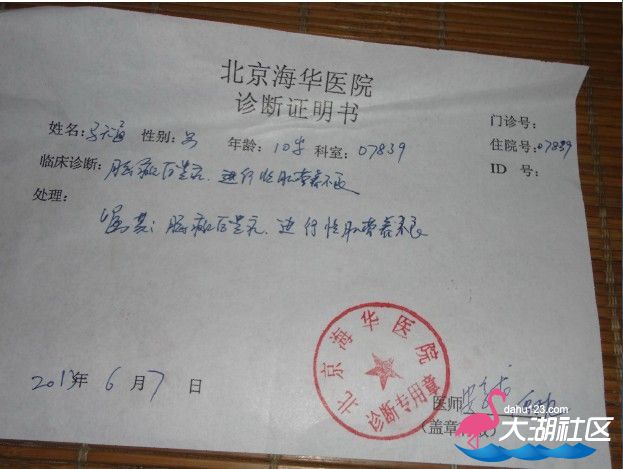 北京海华医院
诊断证明书
门诊号:
姓名: 性别: 年龄: 10岁 科室: 07839 住院号: 07839
临床诊断: 脑瘫 进行性肌营养不良 ID 号:
处理:
脑瘫 进行性肌营养不良
北京海华医院
诊断专用章
2013年 6月7日
医师
(盖章
dahu123.com
大湖社区